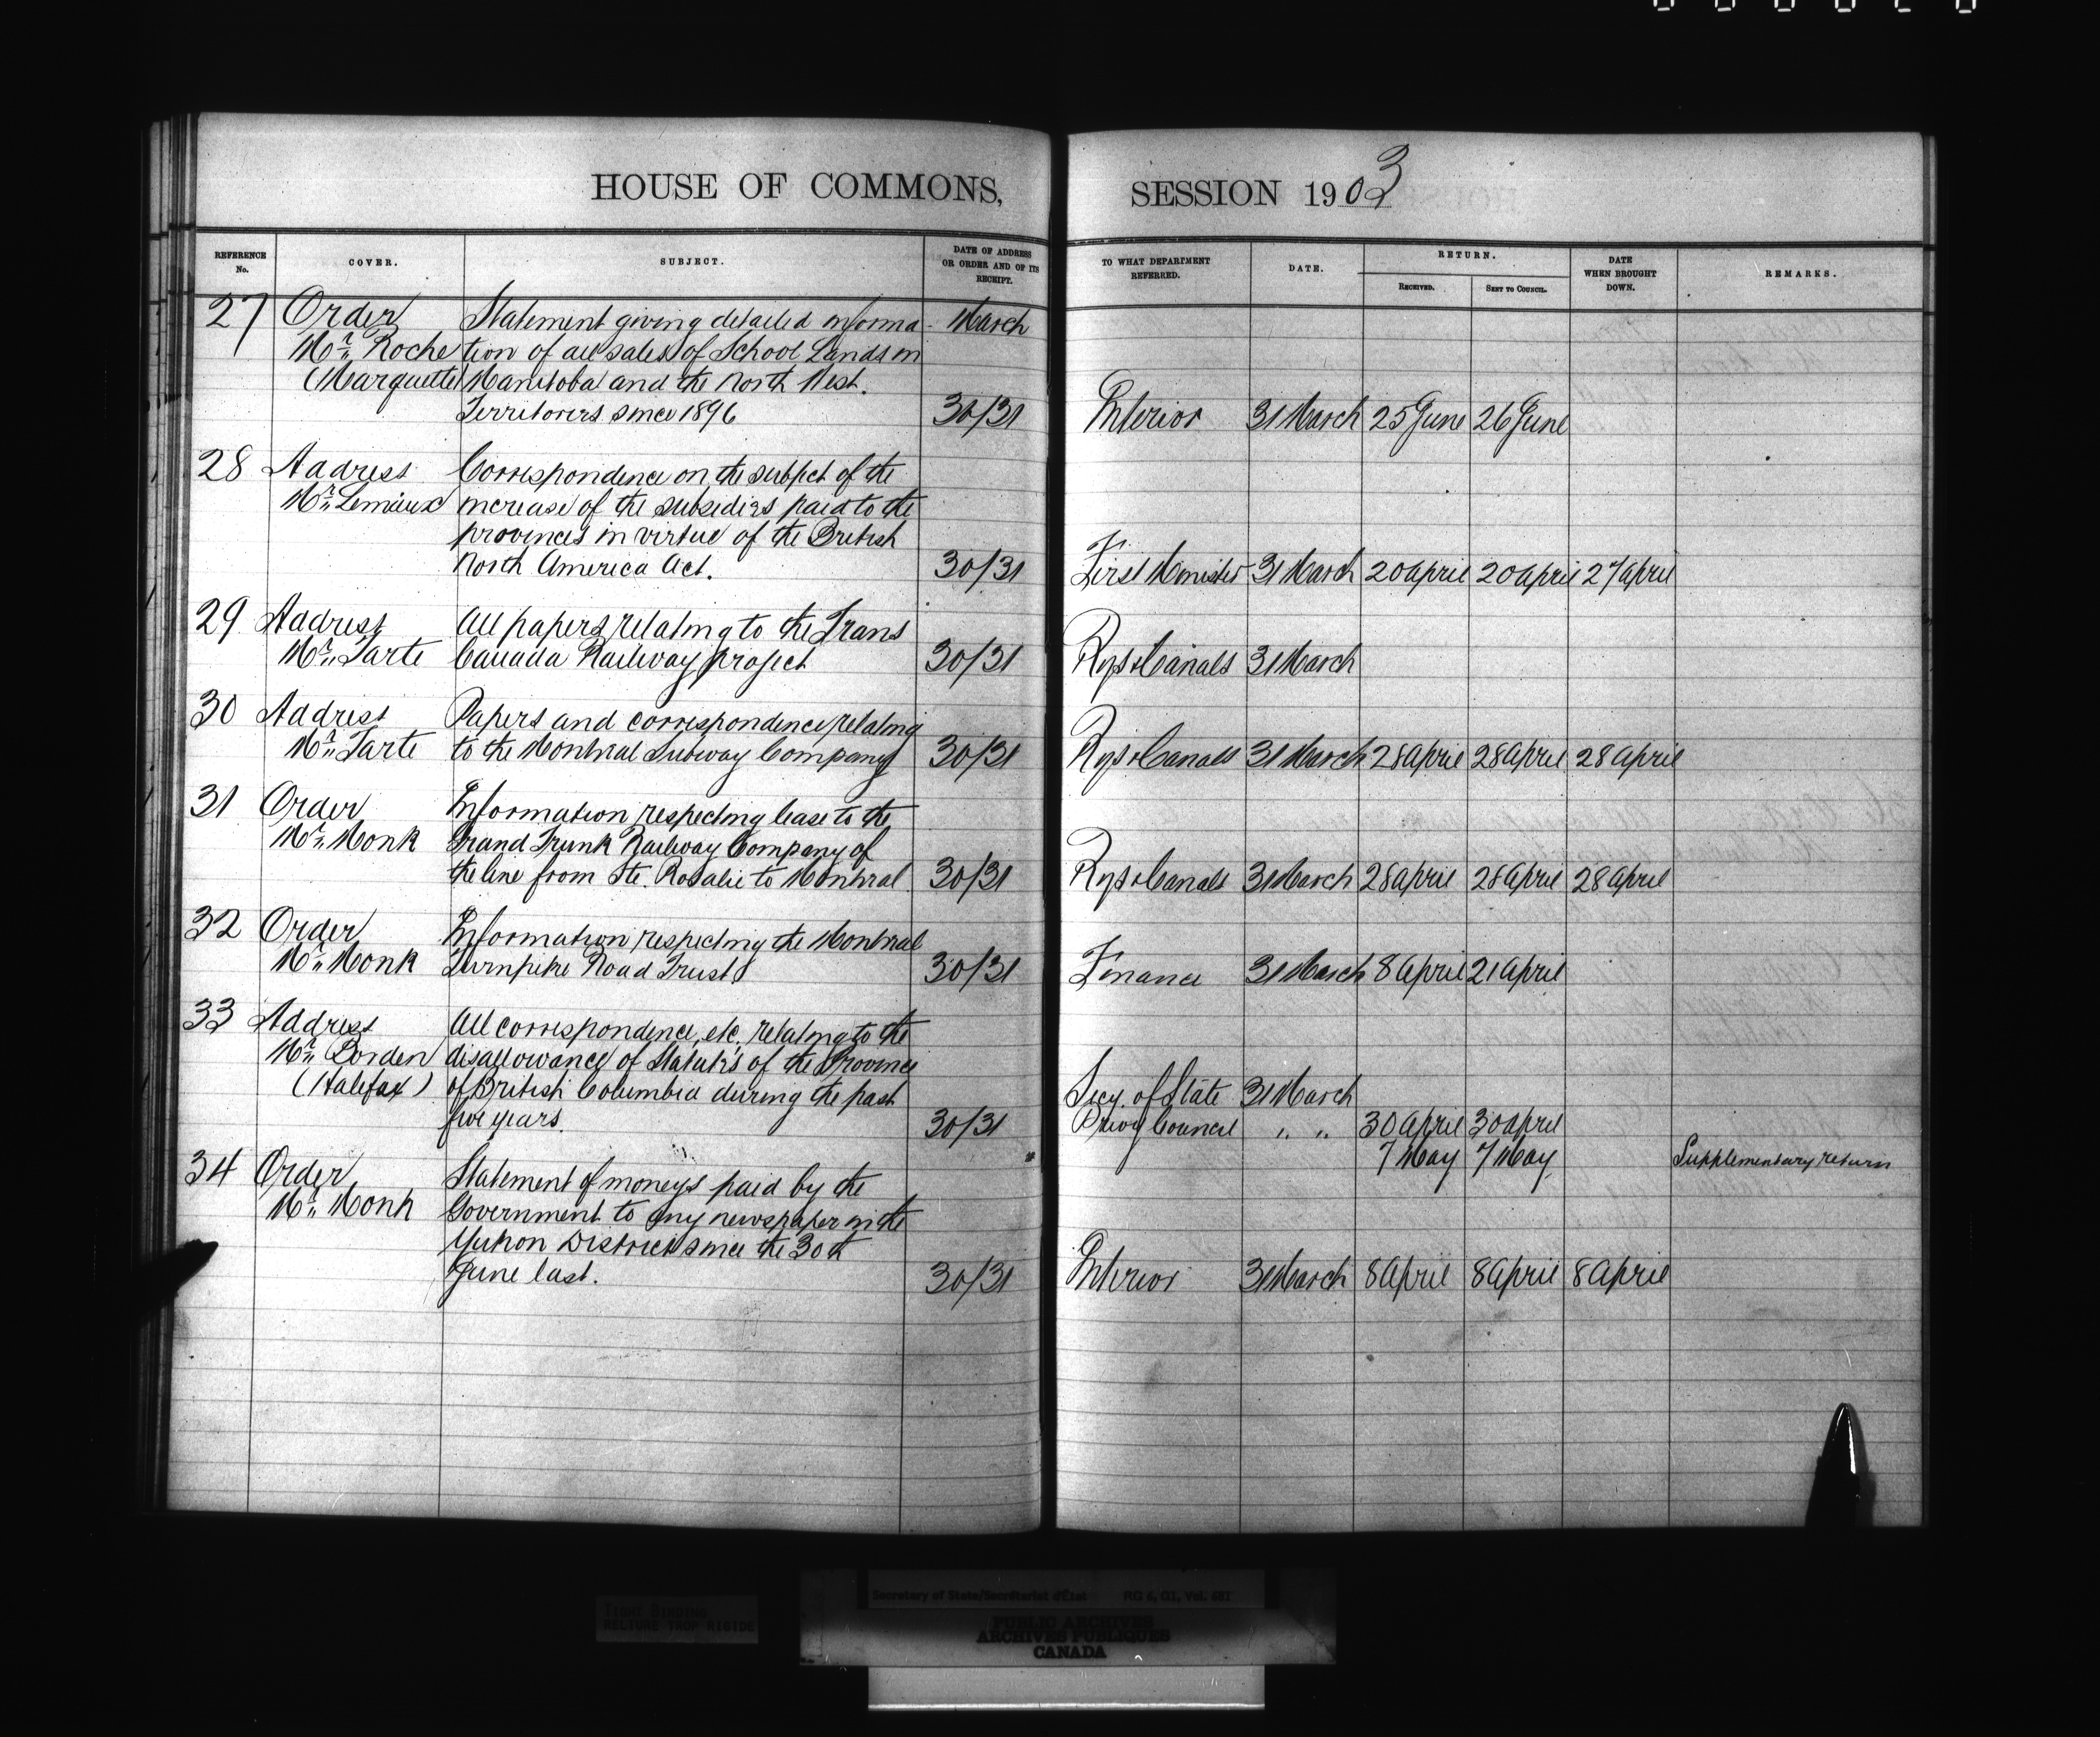 HOUSE OF COMMONS,
REFERENCE No. COVER. SUBJECT. DATE OF ADDRESS OR ORDER AND OF ITS RECEIPT.
27 Order Statement giving detailed informa- March
Mr. Roche tion of all sales of School Lands in
(Marquette) Manitoba and the North West.
Territories since 1896 30/31
28 Address Correspondence on the subject of the
Mr. Lemieux increase of the subsidies paid to the
provinces in virtue of the British
North America Act. 30/31
29 Address All papers relating to the Trans
Mr. Tarte Canada Railway project 30/31
30 Address Papers and correspondence relating
Mr. Tarte to the Montreal Subway Company 30/31
31 Order Information respecting lease to the
Mr. Monk Grand Trunk Railway Company of
the line from Ste. Rosalie to Montreal 30/31
32 Order Information respecting the Montreal
Mr. Monk Turnpike Road Trust 30/31
33 Address All correspondence, etc. relating to the
Mr. Borden disallowance of Statutes of the Province
(Halifax) of British Columbia during the past
five years. 30/31
34 Order Statement of moneys paid by the
Mr. Monk Government to any newspaper in the
Yukon District since the 30th
June last. 30/31
SESSION 1903
TO WHAT DEPARTMENT REFERRED. DATE. RETURN. RECEIVED. SENT TO COUNCIL. DATE WHEN BROUGHT DOWN. REMARKS.
Interior 31 March 25 June 26 June
First Minister 31 March 20 April 20 April 27 April
Rys & Canals 31 March
Rys & Canals 31 March 28 April 28 April 28 April
Rys & Canals 31 March 28 April 28 April 28 April
Finance 31 March 8 April 21 April
Secy. of State 31 March
Privy Council " " 30 April 30 April
7 May 7 May Supplementary return
Interior 31 March 8 April 8 April 8 April
TIGHT BINDING
RELIURE TROP RIGIDE
Secretary of State/Secrétariat d'État RG 6, G1, Vol. 681
PUBLIC ARCHIVES
ARCHIVES PUBLIQUES
CANADA